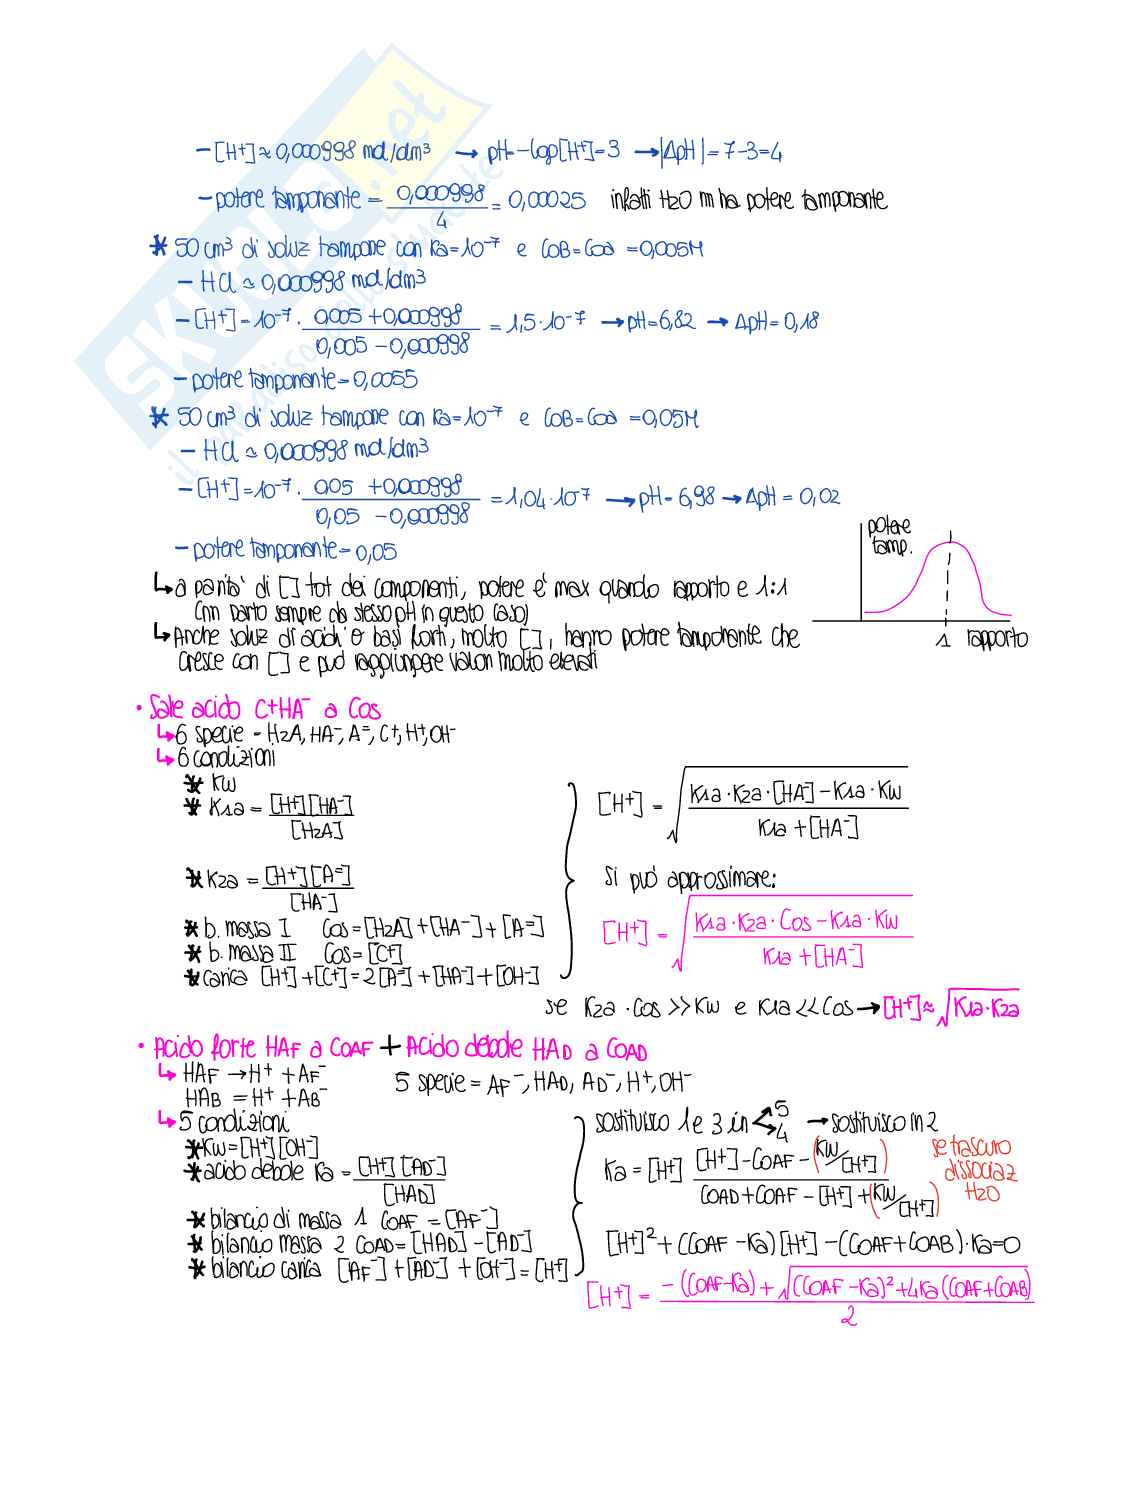 – [H+] ≈ 0,000998 mol/dm³ → pH=–log[H+]=3 → |ΔpH|= 7-3=4
– potere tamponante = 0,000998/4 = 0,00025 infatti H2O nn ha potere tamponante
* 50 cm³ di soluz tampone con Ka=10⁻⁷ e COB=COA =0,005M
– HCl ≈ 0,000998 mol/dm³
– [H+]=10⁻⁷· (0,005+0,000998)/(0,005–0,000998) = 1,5·10⁻⁷ → pH=6,82 → ΔpH=0,18
– potere tamponante=0,0055
* 50 cm³ di soluz tampone con Ka=10⁻⁷ e COB=COA =0,05M
– HCl ≈ 0,000998 mol/dm³
– [H+]=10⁻⁷· (0,05 +0,000998)/(0,05 –0,000998) = 1,04·10⁻⁷ → pH=6,98 → ΔpH = 0,02
– potere tamponante=0,05
potere
tamp.
1 rapporto
↳ a parita' di [] tot dei componenti, potere e' max quando rapporto e 1:1
(nn parto sempre da stesso pH in questo caso)
↳ Anche soluz di acidi e basi forti, molto [], hanno potere tamponante che
cresce con [] e può raggiungere valori molto elevati
• Sale acido C+HA⁻ a COS
↳ 6 specie - H2A, HA⁻, A⁼, C+, H+, OH⁻
↳ 6 condizioni
* Kw
* K1a = [H+][HA⁻]/[H2A]
* K2a = [H+][A⁼]/[HA⁻]
* b. massa I COS=[H2A]+[HA⁻]+[A⁼]
* b. massa II COS=[C+]
* carica [H+]+[C+]=2[A⁼]+[HA⁻]+[OH⁻]
[H+] = √((K1a·K2a·[HA⁻]–K1a·Kw)/(K1a+[HA⁻]))
Si può approssimare:
[H+] = √((K1a·K2a·COS–K1a·Kw)/(K1a+[HA⁻]))
se K2a·COS>>Kw e K1a<<COS → [H+]≈√(K1a·K2a)
• Acido forte HAF a COAF + Acido debole HAD a COAD
↳ HAF →H+ +AF⁻ 5 specie = AF⁻, HAD, AD⁻, H+, OH⁻
HAB =H+ +AB⁻
↳ 5 condizioni
* Kw=[H+][OH⁻]
* acido debole Ka = [H+][AD⁻]/[HAD]
* bilancio di massa 1 COAF =[AF⁻]
* bilancio massa 2 COAD=[HAD]–[AD⁻]
* bilancio carica [AF⁻]+[AD⁻]+[OH⁻]=[H+]
sostituisco 1 e 3 in < 5 4 → sostituisco in 2
Ka = [H+] ([H+]–COAF–(Kw/[H+]))/(COAD+COAF–[H+]+(Kw/[H+]))
se trascuro
dissociaz
H2O
[H+]²+(COAF–Ka)[H+]–(COAF+COAB)·Ka=0
[H+] = (–(COAF-Ka)+√((COAF–Ka)²+4Ka(COAF+COAB)))/2
SKUOLA.net